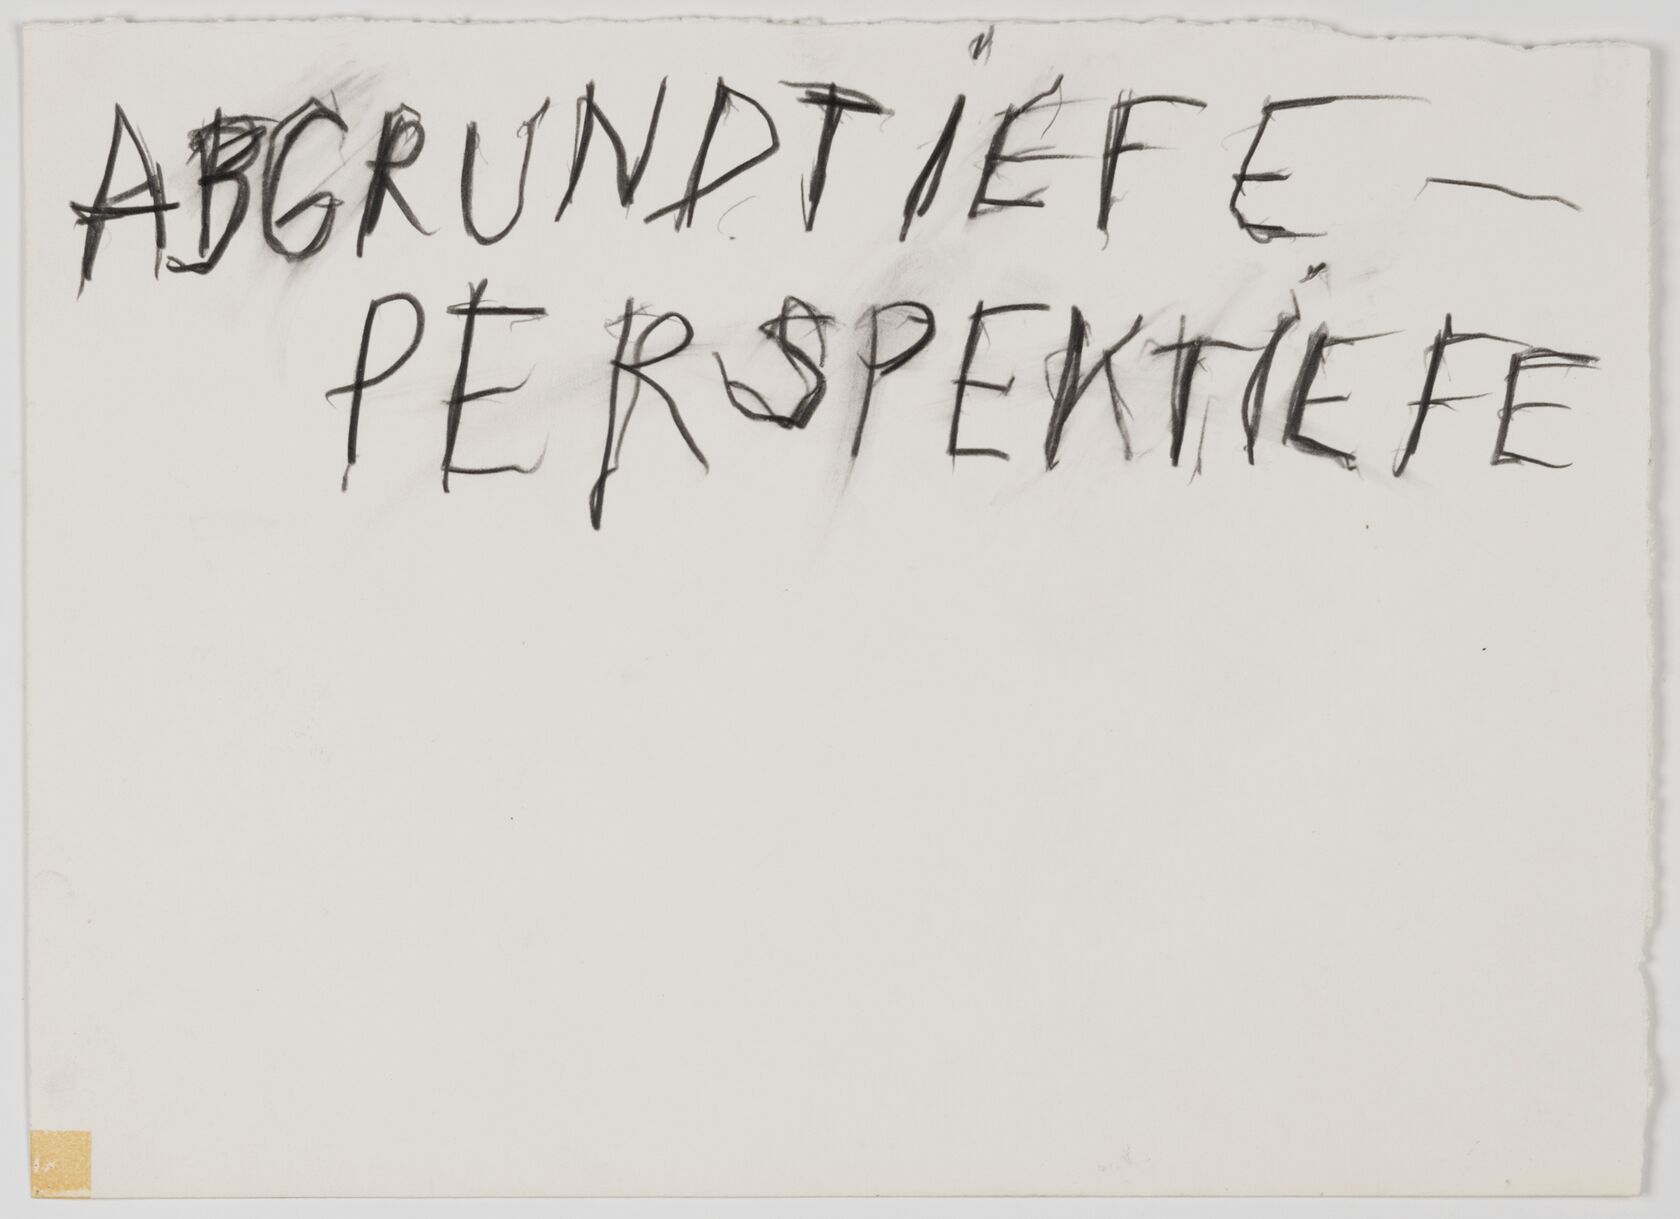 ABGRUNDTiEFE —
PERSPEKTiEFE